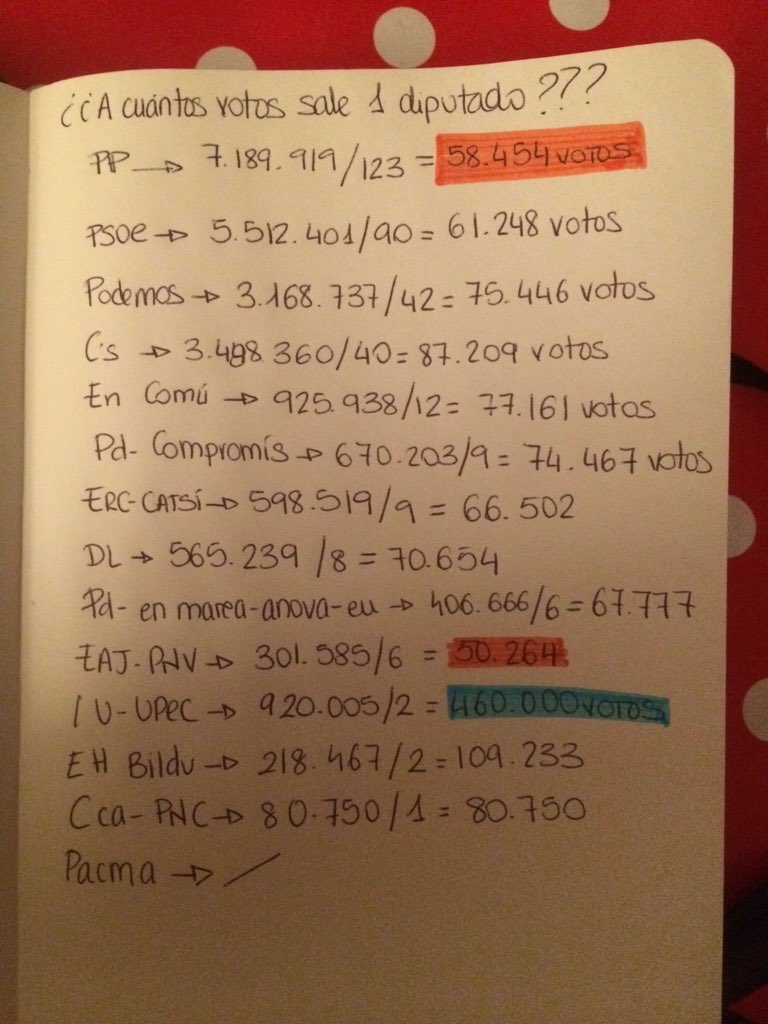 ¿¿A cuántos votos sale 1 diputado???
PP → 7.189.919/123 = 58.454 votos
PSOE → 5.512.401/90 = 61.248 votos
Podemos → 3.168.737/42 = 75.446 votos
C's → 3.488.360/40 = 87.209 votos
En Comú → 925.938/12 = 77.161 votos
Pd- Compromís → 670.203/9 = 74.467 votos
ERC-CATSÍ → 598.519/9 = 66.502
DL → 565.239/8 = 70.654
Pd- en marea-anova-eu → 406.666/6 = 67.777
EAJ-PNV → 301.585/6 = 50.264
IU-UPEC → 920.005/2 = 460.000 votos
EH Bildu → 218.467/2 = 109.233
Cca-PNC → 80.750/1 = 80.750
Pacma → /